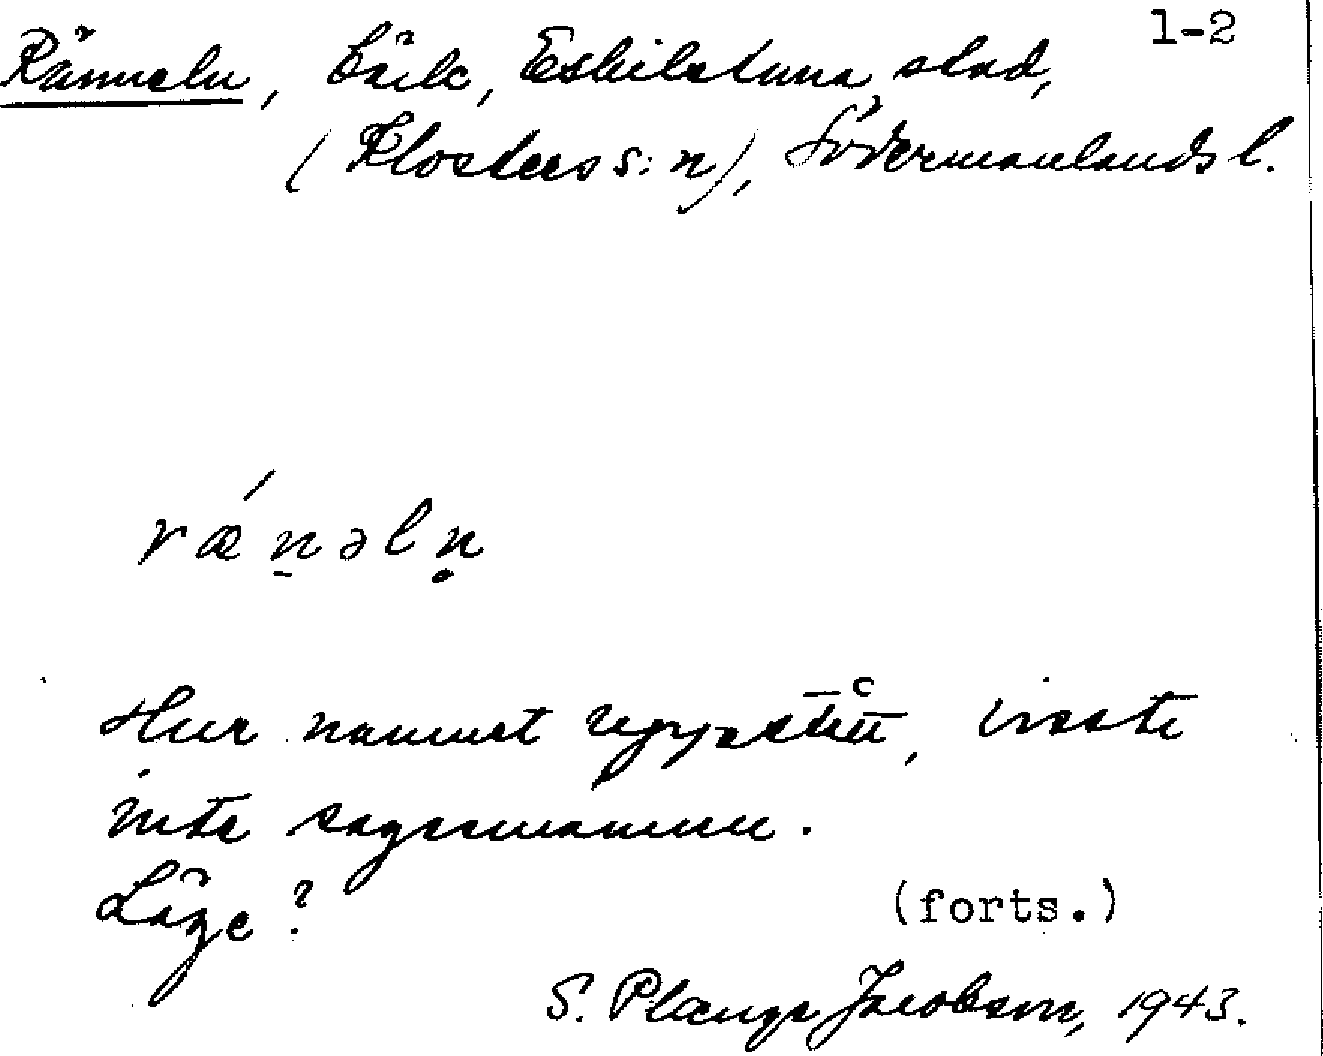 1-2
Ränneln, bäck, Eskilstuna stad,
(Klosters s:n), Södermanlands l.
rǽn̠əlṇ
Hur namnet uppstått, visste
inte sagesmannen.
Läge?
(forts.)
S. Plange Jacobson, 1943.